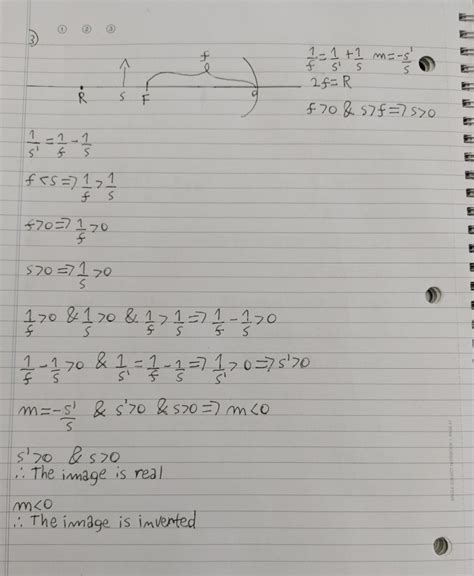 3) ① ② ③
f
R s F
1/f = 1/s' + 1/s m = -s'/s
2f = R
f>0 & s>f => s>0
1/s' = 1/f - 1/s
f<s => 1/f > 1/s
f>0 => 1/f > 0
s>0 => 1/s > 0
1/f > 0 & 1/s > 0 & 1/f > 1/s => 1/f - 1/s > 0
1/f - 1/s > 0 & 1/s' = 1/f - 1/s => 1/s' > 0 => s' > 0
m = -s'/s & s'>0 & s>0 => m<0
s'>0 & s>0
∴ The image is real
m<0
∴ The image is invented